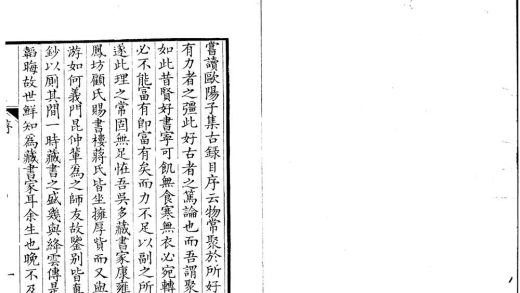 嘗讀歐陽子集古錄目序云物常聚於所好
有力者之彊此好古者之篤論也而吾謂聚
如此昔賢好書寧可飢無食寒無衣必宛轉
必不能富有即富有矣而力不足以副之所
遂此理之常固無足怪吾吳多藏書家康雍
鳳坊顧氏賜書樓蔣氏皆坐擁厚貲而又與
游如何義門昆仲輩爲之師友故鑒別皆
鈔以廁其間一時藏書之盛幾與絳雲傳是
韜晦故世鮮知爲藏書家耳余生也晚不及
序
一